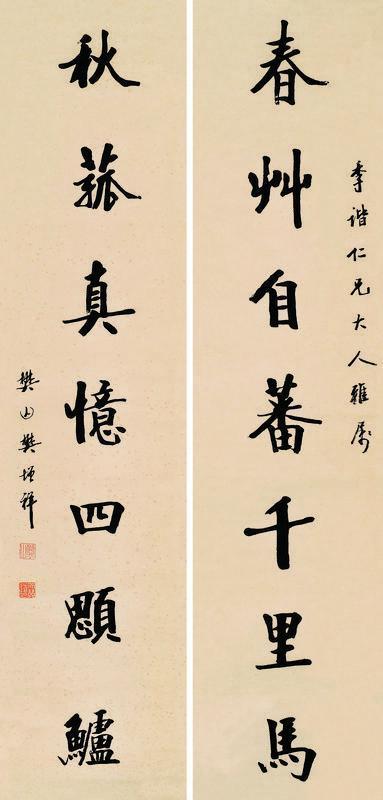 季諧仁兄大人雅屬
春艸自蕃千里馬
秋菰真憶四顋鱸
樊山樊增祥